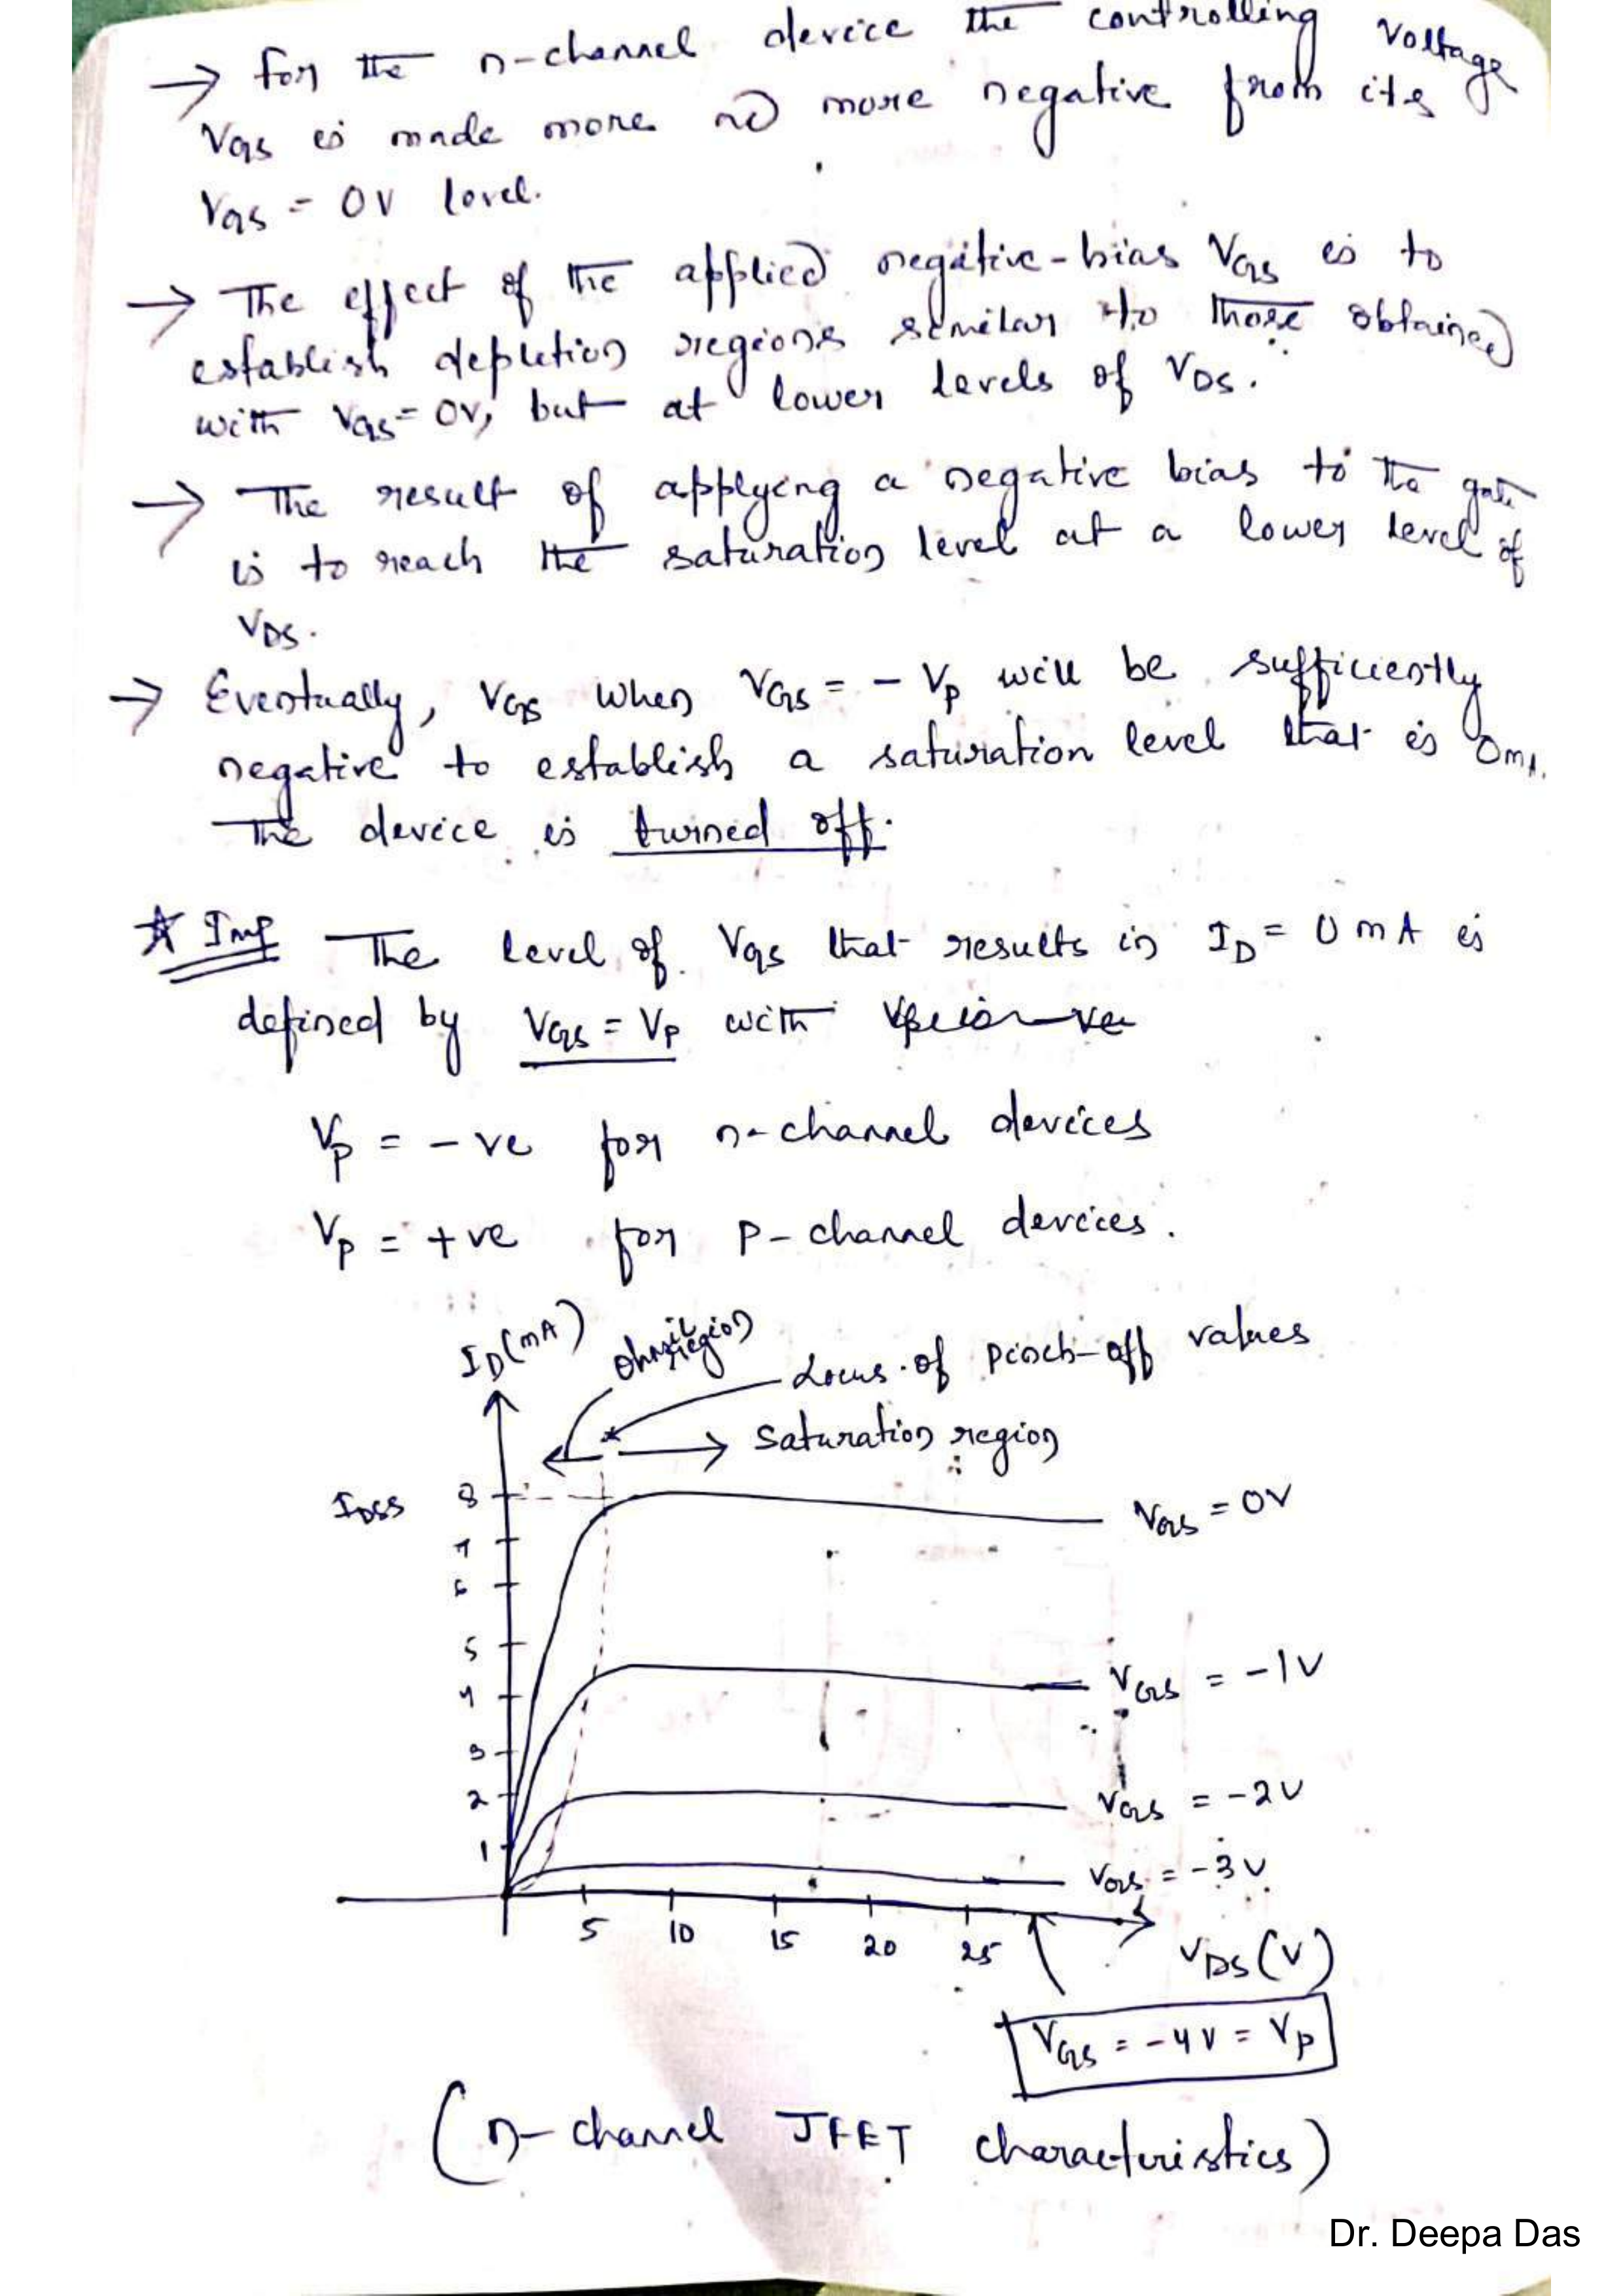 → for the n-channel device the controlling voltage
VGS is made more and more negative from its
VGS = 0V level.
→ The effect of the applied negative-bias VGS is to
establish depletion regions similar to those obtained
with VGS = 0V, but at lower levels of VDS.
→ The result of applying a negative bias to the gate
is to reach the saturation level at a lower level of
VDS.
→ Eventually, VGS when VGS = - Vp will be sufficiently
negative to establish a saturation level that is 0mA.
The device is turned off.
★ Imp The level of VGS that results in ID = 0 mA is
defined by VGS = VP with
Vp = - ve for n-channel devices
Vp = +ve for p-channel devices.
ID(mA)
ohmic region
Locus of pinch-off values
Saturation region
IDSS
8
7
6
5
4
3
2
1
VGS = 0V
VGS = -1V
VGS = -2V
VGS = -3V
5 10 15 20 25
VDS (V)
VGS = -4V = Vp
(n-channel JFET characteristics)
Dr. Deepa Das